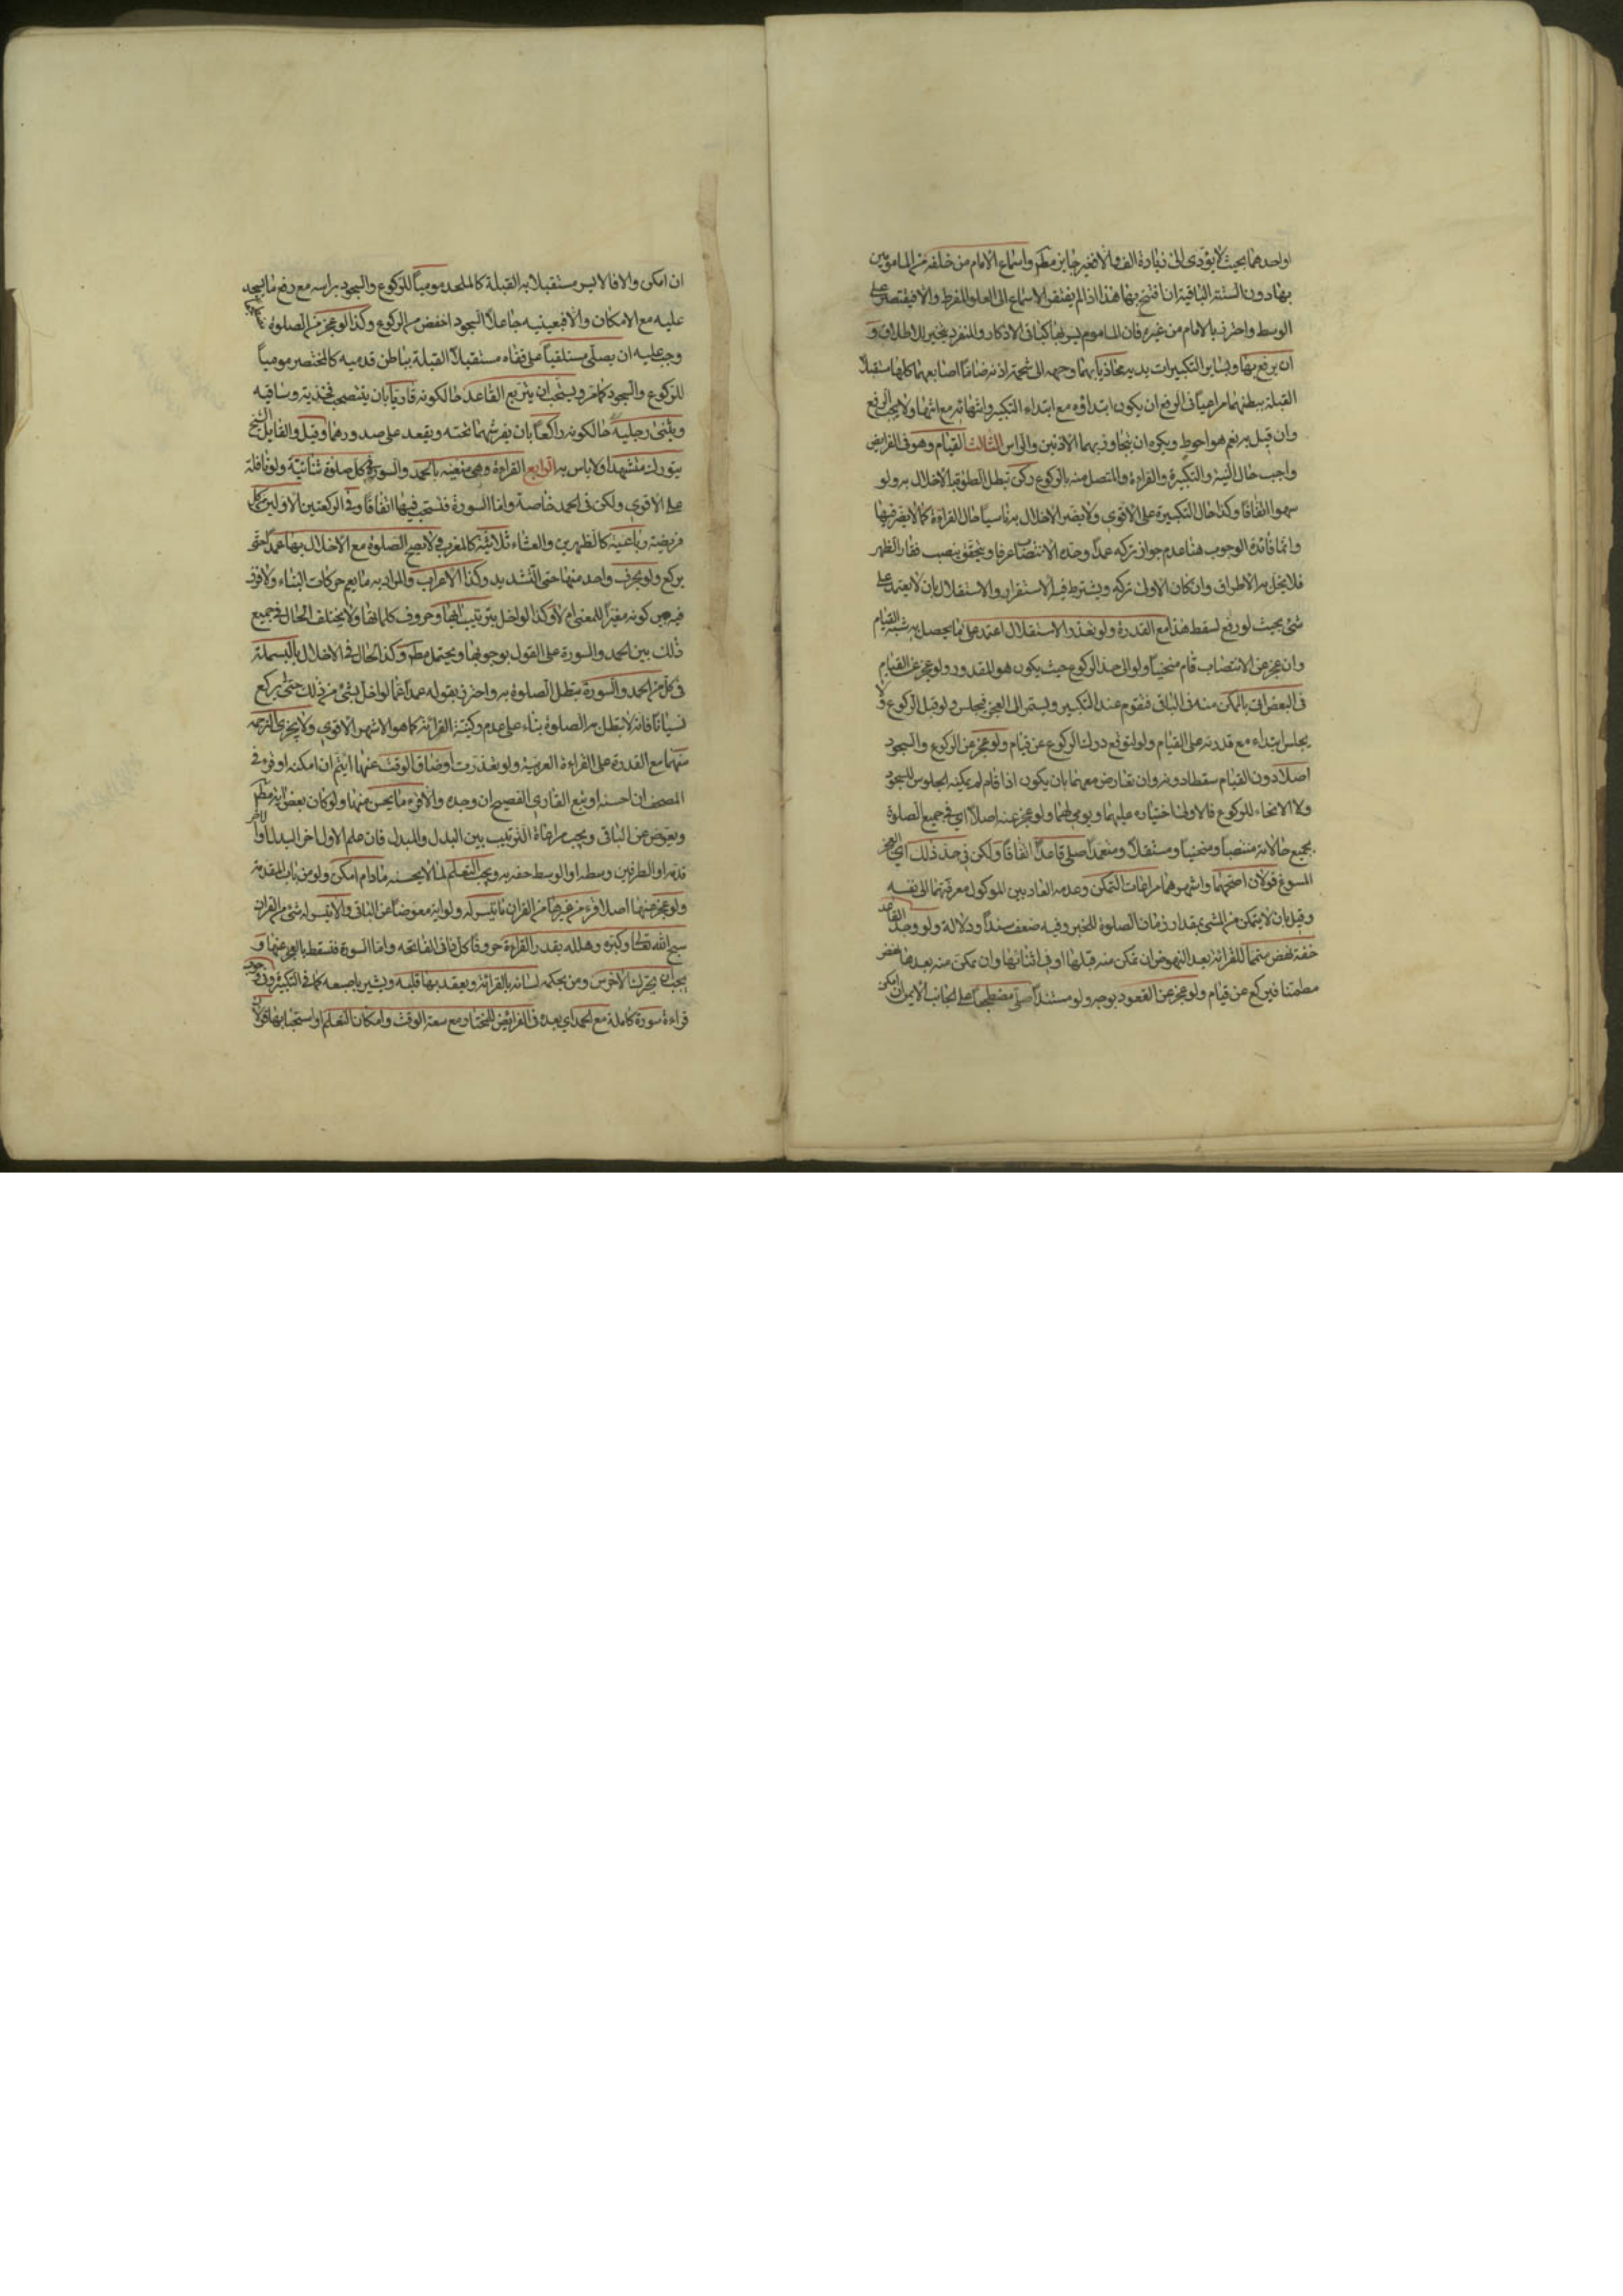 او احدهما بحيث لا يؤدى الى زيادة الف والا فغير جايز مطم واسماع الامام من خلفه من المامومين
بها دون الستة الباقية ان افتتح بها هذا اذا لم يفتقر الاسماع الى العلو المفرط والا فيقتصر على
الوسط واحترز بالامام من غيره فان الماموم يسر بها كباقى الاذكار والمنفرد يتخير للاطلاق و
ان يرفع بها وبساير التكبيرات يديه محاذيا بهما وجهه الى شحمة اذنه ضاما اصابعهما كلها مستقبل
القبلة ببطنهما مراعيا فى الرفع ان يكون ابتداؤه مع ابتداء التكبير وانتهائه مع انتهائها ولا يجب الرفع
وان قيل به نعم هو احوط ويكره ان يتجاوز بهما الاذنين والراس الثالث القيام وهو فى الفرايض
واجب حال النية والتكبيرة والقراءة والمتصل منه بالركوع ركن تبطل الصلوة بالاخلال به ولو
سهوا اتفاقا وكذا حال التكبيرة على الاقوى ولا يضر الاخلال به ناسيا حال القراءة كما لا يضر فيها
وانما فائدة الوجوب هنا عدم جواز تركه عمدا وحده الانتصاب عرفا ويتحقق بنصب فقار الظهر
فلا يخل به الاطراق وان كان الاولى تركه ويشترط فيه الاستقرار والاستقلال بان لا يعتمد على
شئ بحيث لو رفع لسقط هذا مع القدرة ولو تعذر الاستقلال اعتمد على ما يحصل به شبه القيام
وان عجز عن الانتصاب قام منحنيا ولو الى حد الركوع حيث يكون هو المقدور ولو عجز عن القيام
فى البعض اتى بالممكن منه فى الباقى فيقوم عند التكبير ويستمر الى العجز فيجلس ولو قبل الركوع ولا
يجلس ابتداء مع قدرته على القيام ولو لتوقع درك الركوع عن قيام ولو عجز عن الركوع والسجود
اصلا دون القيام سقطا دونه وان تعارض معهما بان يكون اذا قام لم يمكنه الجلوس للسجود
ولا الانحاء للركوع فالاولى اختياره عليهما ويومى لهما ولو عجز عنه اصلا اى فى جميع الصلوة
بجميع حالاته منتصبا ومنحنيا ومستقلا ومتعمدا صلى قاعدا اتفاقا ولكن فى حد ذلك اى العجز
المسوغ قولان اصحهما واشهرهما مراعات التمكن وعدمه العاديين الموكول معرفتهما الى نفسه
وقيل بان لا يتمكن من المشى بقدار زمان الصلوة للخبر وفيه ضعف سندا ودلالة ولو وجد القاعد
خفة نهض متمما للقرائة بعد النهوض ان تمكن منه قبلها او فى اثنائها وان تمكن منه بعدها نهض
مطمئنا فيركع عن قيام ولو عجز عن القعود بوجه ولو مستندا صلى مضطجعا على الجانب الايمن ان امكن
ان امكن والا فالايسر مستقبلا به القبلة كالملحد موميا للركوع والسجود براسه مع رفع ما يسجد
عليه مع الامكان والا فبعينيه جاعلا السجود اخفض من الركوع وكذا لو عجز من الصلوة
وجب عليه ان يصلى مستلقيا على قفاه مستقبلا القبلة بباطن قدميه كالمحتضر موميا
للركوع والسجود كما مر ويستحب ان يتربع القاعد حال كونه قارئا بان ينصب فخذيه وساقيه
ويثنى رجليه حال كونه راكعا بان يفرشهما تحته ويقعد على صدورهما وقيل والقايل الشيخ
يتورك متشهدا ولا باس به الرابع القراءة وهى متعينه بالحمد والسورة فى كل صلوة ثنائية ولو نافلة
على الاقوى ولكن فى الحمد خاصة واما السورة فتستحب فيها اتفاقا وفى الركعتين الاوليين من كل
فريضة رباعية كالظهرين والعشاء ثلاثية كالمغرب فلا تصح الصلوة مع الاخلال بها عمدا حتى
يركع ولو بحرف واحد منها حتى التشديد وكذا الاعراب والمراد به ما يعم حركات البناء ولا فرق
فيه بين كونه مغيرا للمعنى ام لا وكذا لو اخل بترتيب آيها وحروف كلماتها ولا يختلف الحال فى جميع
ذلك بين الحمد والسورة على القول بوجوبها ويحتمل مطم وكذا الحال فى الاخلال بالبسملة
فى كل من الحمد والسورة يبطل الصلوة به واحترز بقوله عمدا عما لو اخل بشئ من ذلك حتى يركع
نسيانا فانه لا تبطل به الصلوة بناء على عدم ركنية القرائة كما هو الاشهر الاقوى ولا يجزى الترجمه
منهما مع القدرة على القراءة العربية ولو تعذرت او ضاق الوقت عنها ائتم ان امكنه او قرء فى
المصحف ان احسنه او تبع القارى الفصيح ان وجده والا قرء ما يحسن منها ولو كان بعض اية مطم
ويعوض عن الباقى ويجب مراعاة الترتيب بين البدل والمبدل فان علم الاول اخر البدل او الاخر
قدمه او الطرفين وسطه او الوسط حفه به ويجب التعلم لما لا يحسنه مادام امكن ولو من باب المقدمة
ولو عجز عنها اصلا قرء من غيرها من القران ما تيسر له ولو اية معوضا عن الباقى والا يتيسر له شئ من القران
سبح الله تعالى وكبره وهلله بقدر القراءة حروفا كل ذا فى الفاتحه واما السورة فتسقط بالعجز عنها و
يجب ان يحرك الاخرس ومن بحكمه لسانه بالقرائة ويعقد بها قلبه ويشير باصبعه كما فى التكبير وفى وجوب
قراءة سورة كاملة مع الحمد اى بعده فى الفرايض للمختار مع سعة الوقت وامكان التعلم او استحبابها قولان